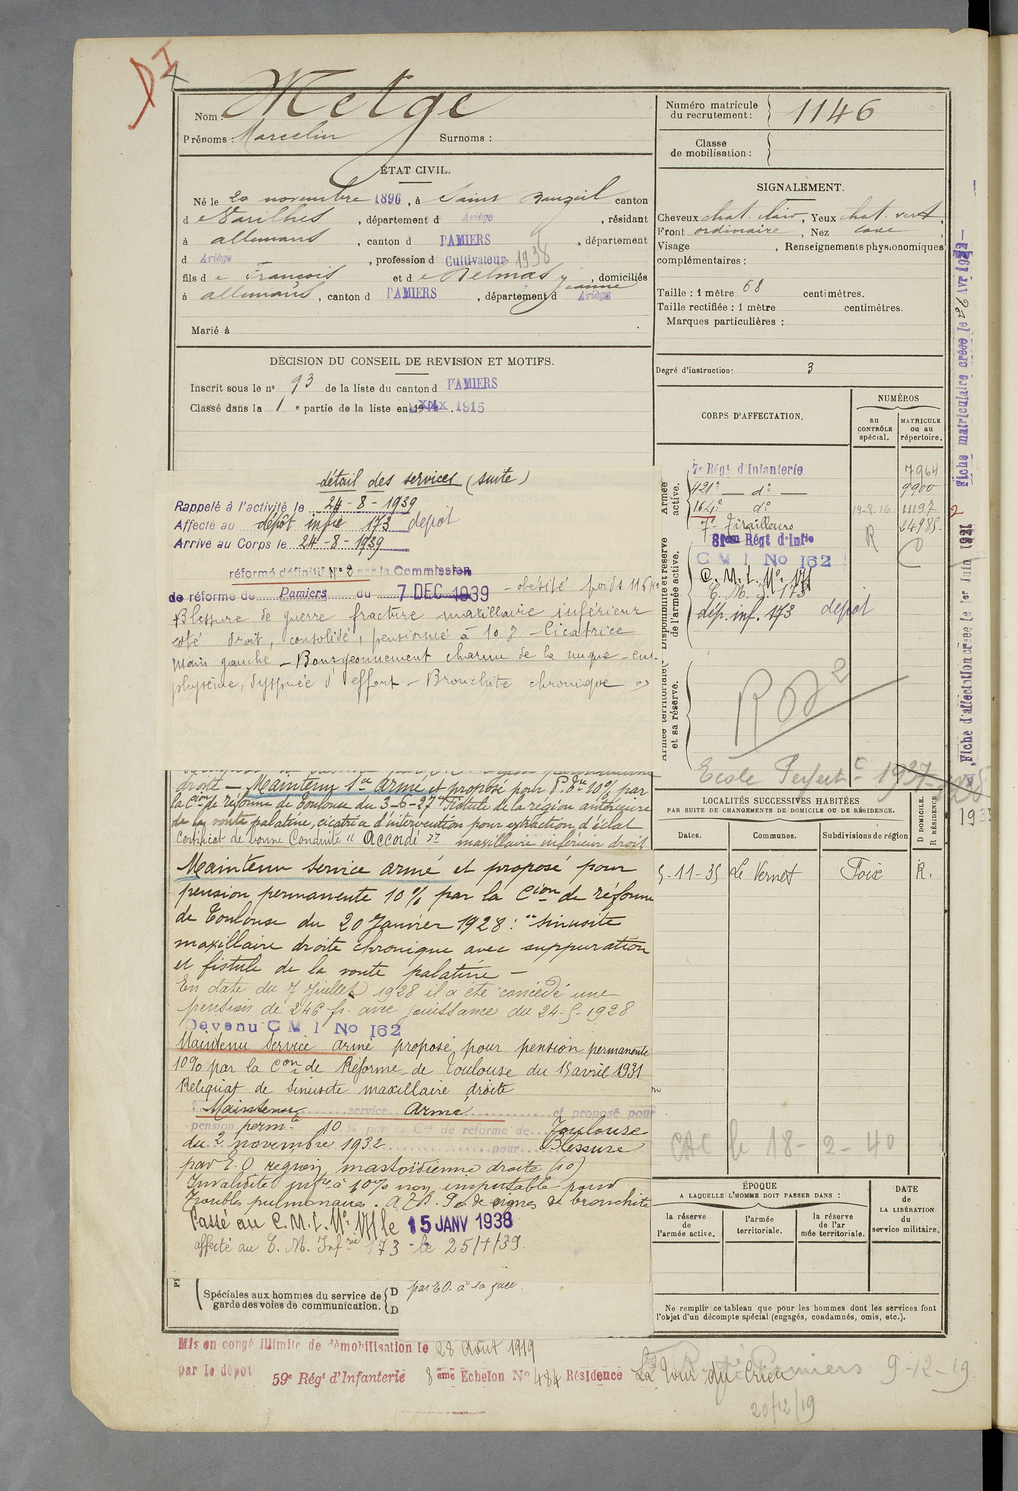 Nom : Metge
Prénoms : Marcelin Surnoms :
Numéro matricule du recrutement : 1146
Classe de mobilisation :
ÉTAT CIVIL.
Né le 20 novembre 1896, à Saint Bauzeil canton
de Varilhes, département d Ariège, résidant
à allemans, canton d PAMIERS, département
d Ariège, profession d Cultivateur 1936
fils de François et de Delmas Jeanne, domiciliés
à allemans, canton d PAMIERS, département d Ariège
Marié à
SIGNALEMENT.
Cheveux chat. clair, Yeux chat. vert,
Front ordinaire, Nez cave,
Visage , Renseignements physionomiques
complémentaires :
Taille : 1 mètre 68 centimètres.
Taille rectifiée : 1 mètre centimètres.
Marques particulières :
Degré d'instruction : 3
DÉCISION DU CONSEIL DE REVISION ET MOTIFS.
Inscrit sous le n° 93 de la liste du canton d PAMIERS
Classé dans la 1 e partie de la liste en 1915
CORPS D'AFFECTATION.
NUMÉROS
au CONTRÔLE spécial.
MATRICULE ou au répertoire.
Armée active.
7e Régt d'Infanterie 7964
421e — do — 9900
164e do 19-8-16 11197
7e Tirailleurs R 24985
81eme Régt d'Infie
Disponibilité et réserve de l'armée active.
C M I No 162
C. M. I. No 171
C. M. I. 173
dép. inf. 173 depot
Armée territoriale et sa réserve.
Rd 2
détail des services (suite)
Rappelé à l'activité le 24-8-1939
Affecté au dépôt infie 173 depot
Arrivé au Corps le 24-8-1939
réformé définitif No 2 par la Commission
de réforme de Pamiers du 7 DEC 1939 - obésité poids 116 k
Blessure de guerre fracture maxillaire inférieur
coté droit, consolidé, pensionné à 10 % - Cicatrice
main gauche - Bourgeonnement charnu de la nuque - em-
physème, dyspnée d'effort - Bronchite chronique
droite - Maintenu 1er armé et proposé pour P.P. 10% par
la Cion de réforme de Toulouse du 3-6-27 "Fistule de la région antérieure
de la voute palatine, cicatrice d'intervention pour extraction d'éclat
Certificat de bonne Conduite "Accordé" maxillaire inférieur droit
Maintenu service armé et proposé pour
pension permanente 10% par la Cion de réforme
de Toulouse du 20 Janvier 1928 : "Sinusite
maxillaire droite chronique avec suppuration
et fistule de la voute palatine -
En date du 7 Juillet 1928 il a été concédé une
pension de 246 fr. avec jouissance du 24-5-1928
Devenu C M I No 162
Maintenu Service armé proposé pour pension permanente
10% par la Cion de Réforme de Toulouse du 15 avril 1931
Reliquat de sinusite maxillaire droite
Maintenu service armé et proposé pour
pension permte 10 % par la Cion de réforme de Toulouse
du 2 novembre 1932 pour Blessure
par E.O. région mastoïdienne droite (10)
Invalidité infre à 10% non imputable pour
Troubles pulmonaires. Pas de signes de bronchite
Passé au C.M.I. No 171 le 15 JANV 1938
affecté au C. M. Infrie 173 le 25/4/39.
Spéciales aux hommes du service de garde des voies de communication.
par E.O. à la face.
Ecole Perfect. 1937
LOCALITÉS SUCCESSIVES HABITÉES
PAR SUITE DE CHANGEMENTS DE DOMICILE OU DE RÉSIDENCE.
Dates. Communes. Subdivisions de région D DOMICILE. R RÉSIDENCE.
5-11-35 Le Vernet Foix R.
CAC le 18-2-40
ÉPOQUE
A LAQUELLE L'HOMME DOIT PASSER DANS :
la réserve de l'armée active.
l'armée territoriale.
la réserve de l'armée territoriale.
DATE de LA LIBÉRATION du service militaire.
Ne remplir ce tableau que pour les hommes dont les services font
l'objet d'un décompte spécial (engagés, condamnés, omis, etc.).
Mis en congé illimité de démobilisation le 28 Août 1919
par le dépôt 59e Régt d'Infanterie 8eme Echelon No 484 Résidence La Tour du Crieu
Pamiers 9-12-19.
20/12/19
Fiche d'affectation créée le 1er Juin 1921
Fiche matriculaire créée le